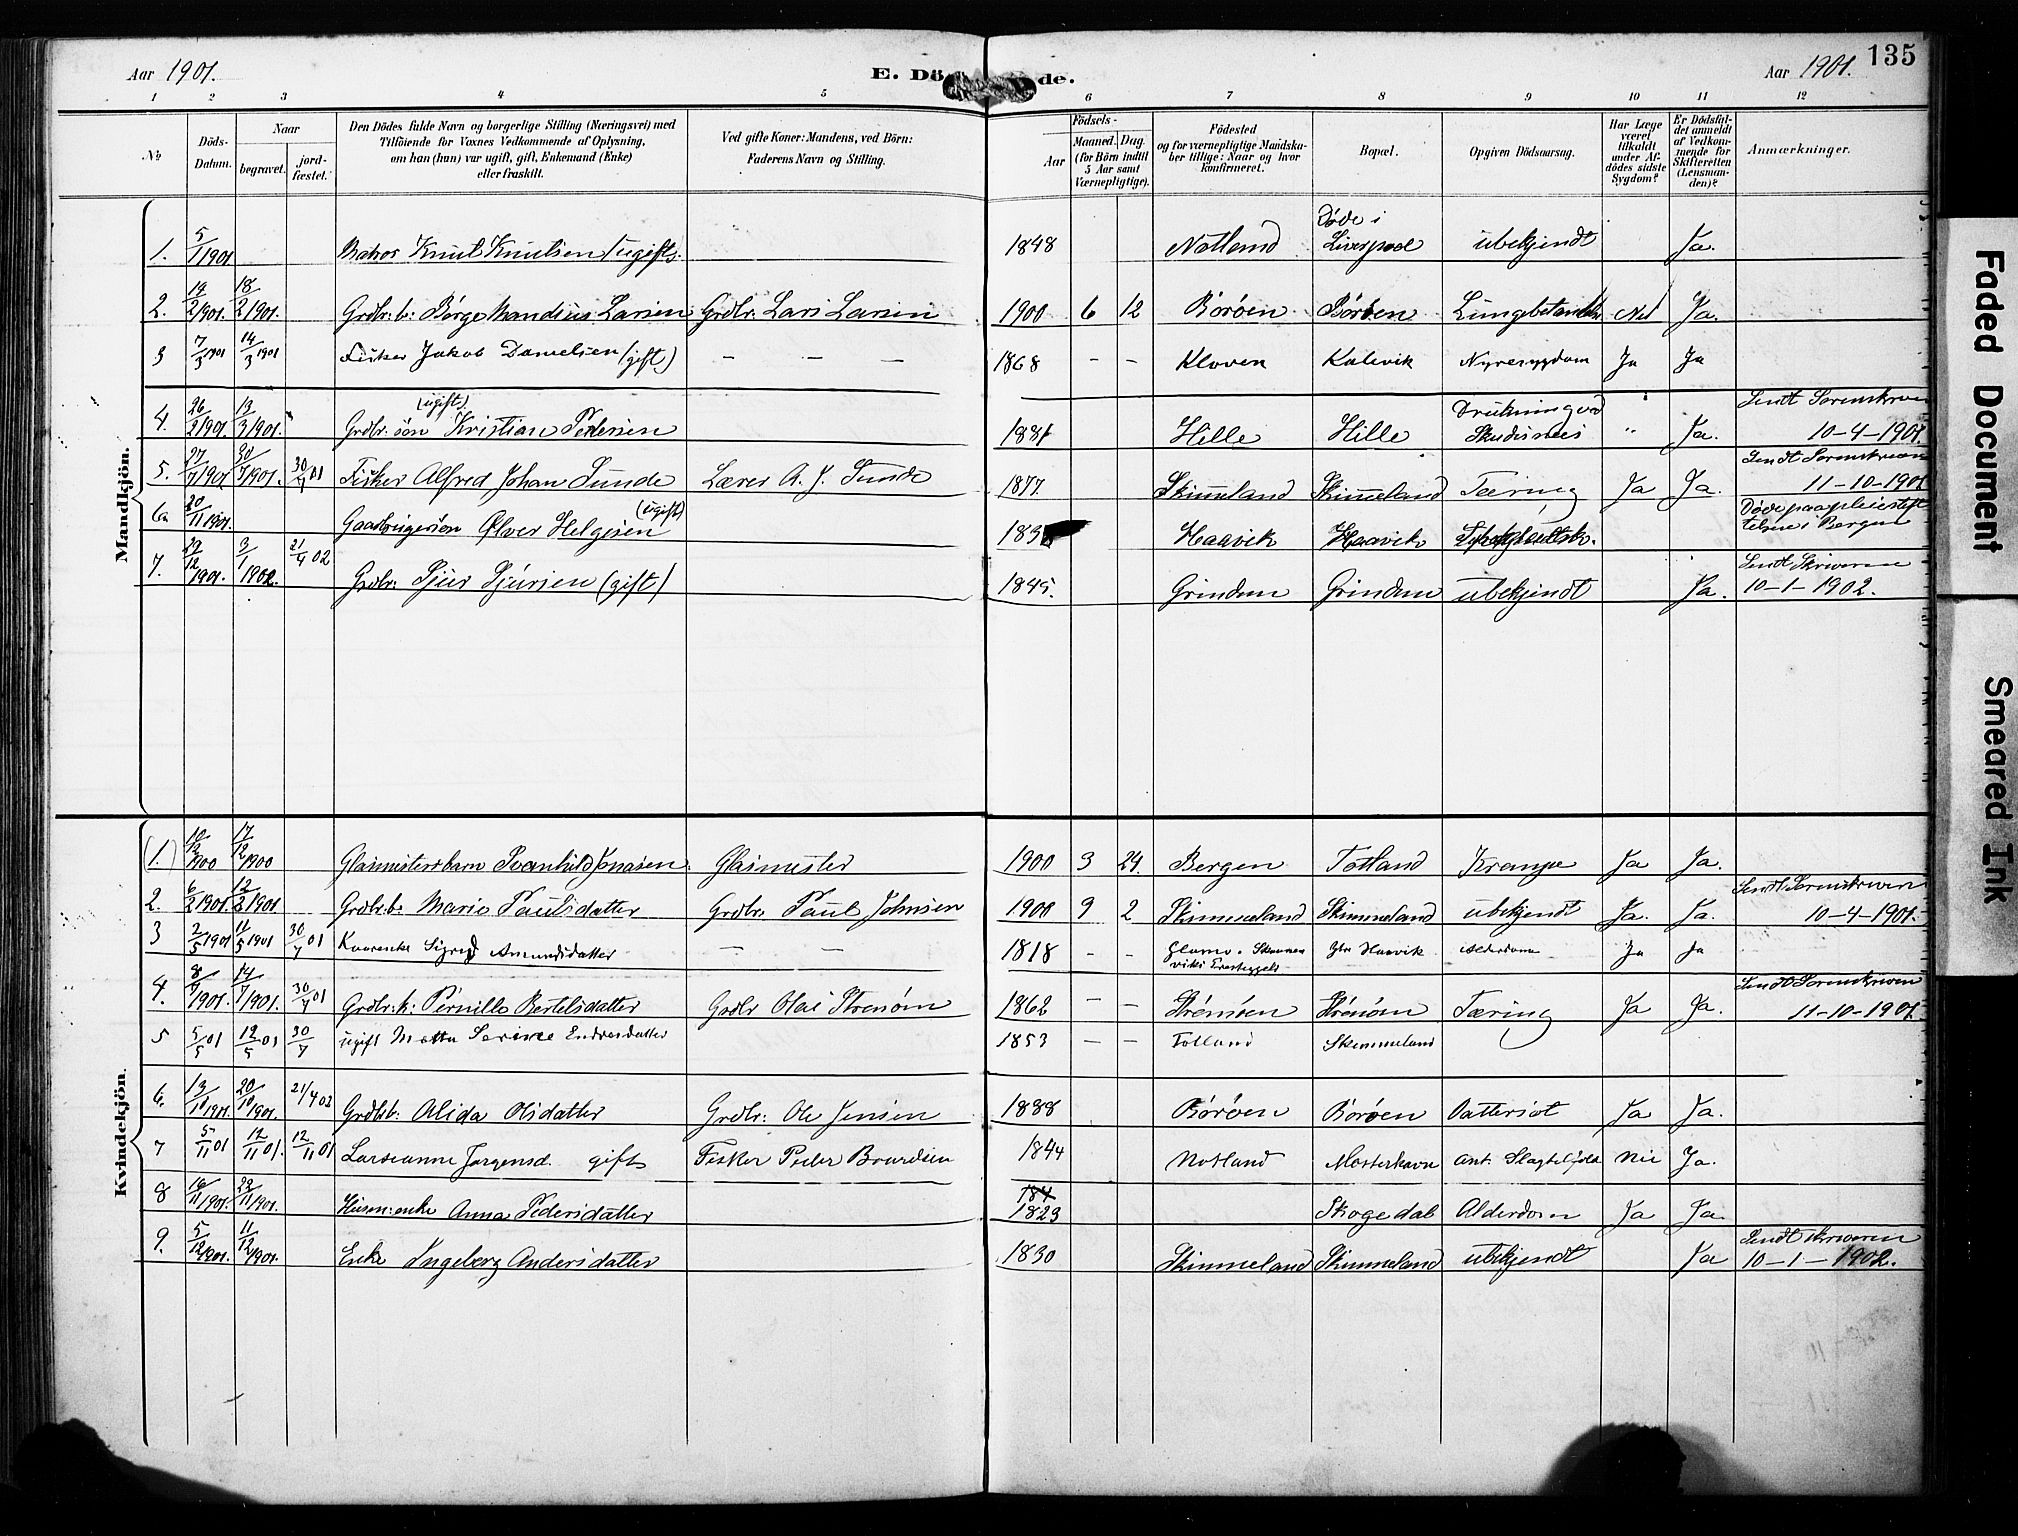 Aar 1901.
E. Dö de.
Aar 1901. 135
1 2 3 4 5 6 7 8 9 10 11 12
№
Döds-Datum.
Naar
begravet.
jord-fæstet.
Den Dödes fulde Navn og borgerlige Stilling (Næringsvei) med
Tilföiende for Voxnes Vedkommende af Oplysning,
om han (hun) var ugift, gift, Enkemand (Enke)
eller fraskilt.
Ved gifte Koner: Mandens, ved Börn:
Faderens Navn og Stilling.
Födsels-
Aar
Maaned. Dag.
(for Börn indtil
5 Aar samt
Værnepligtige).
Födested
og for værnepligtige Mandska-
ber tillige: Naar og hvor
konfirmeret.
Bopæl.
Opgiven Dödsaarsag.
Har Læge
været
tilkaldt
under Af-
dödes sidste
Sygdom?
Er Dödsfal-
det anmeldt
af Vedkom-
mende for
Skifteretten
(Lensman-
den)?
Anmærkninger.
Mandkjön.
1. 5/1 1901 Knut Knutsen (ugift). 1848 Notland Døde i Liverpool ubekjendt Ja.
2. 19/2 1901. 18/2 1901. Grdbr: b: Børge Mandius Larsen Grdbr: Lars Larsen 1900 6 12 Børøen Børøen Lungebetændelse Nei Ja.
3 7/3 1901 14/3 1901 Fisker Jakob Danielsen (gift) — — — 1868 - - Kloven Kalevik Nyresygdom Ja Ja
4. 26/2 1901. 13/3 1901. Grdbr: søn (ugift) Kristian Pedersen 1881 Hille Hille Drukning ved Skudesnes " Ja. Sendt Sorenskriven 10-4-1901.
5. 27/7 1901 30/7 1901. 30/7 01 Fisker Alfred Johan Sunde Lærer A. J. Sunde 1877. Skimmeland Skimmeland Tæring Ja Ja. Sendt Sorenskriven 11-10-1901
6. 20/11 1901. Gaardbrugersøn Ølver Helgesen (ugift) 183 Haavik Haavik Døde paa pleiestiftelse i Bergen
7. 29/12 1901. 3/1 1902. 21/4 02 Grdbr: Sjur Sjursen (gift) 1845. Grindem Grindem ubekjendt Ja. Sendt Skriveren 10-1-1902.
Kvindekjön.
(1.) 10/12 1900 17/12 1900 Glasmestersbarn Svanhild Jonasen. Glasmester 1900 3 24. Bergen Totland Krampe Ja Ja.
2. 6/2 1901. 12/2 1901 Grdbr: b: Marie Paulsdatter Grdbr. Paul Johnsen 1900 9 2 Skimmeland Skimmeland ubekjendt Ja. Ja. Sendt Sorenskriven 10-4-1901.
3 2/5 1901 11/5 1901 30/7 01 Sigrid Amundsdatter — — 1818 - - Haavik Alderdom Ja Ja
4. 8/7 1901. 14/7 1901. 30/7 01 Grdbr: k: Pernille Bertelsdatter Grdbr Olai Strønøm 1862 - - Strønøen Strønøm Tæring Ja Ja. Sendt Sorenskriven 11-10-1901.
5 5/5 01 12/5 01 30/7 ugift Marta Serine Endresdatter 1853 - - Totland Skimmeland
6. 13/10 1901. 20/10 1901. 21/4 02 Grdbr: b: Alida Olsdatter Grdbr: Ole Jensen 1888 Børøen Børøen Vattersot Ja Ja.
7 5/11 01 12/11 01. 12/11 01 Larsianne Jørgensd. gift Fisker Peder Baardsen 1844 Notland Mosterhavn ant. Slagtilfælde Nei Ja.
8 16/11 1901. 22/11 1901. Husm: enke Anna Pedersdatter 184 1823 Skogedal Alderdom Ja Ja
9. 5/12 1901. 11/12 1901. Enke Ingeborg Andersdatter 1830 Skimmeland Skimmeland ubekjendt Ja Sendt skriveren 10-1-1902.
Faded Document
Smeared Ink